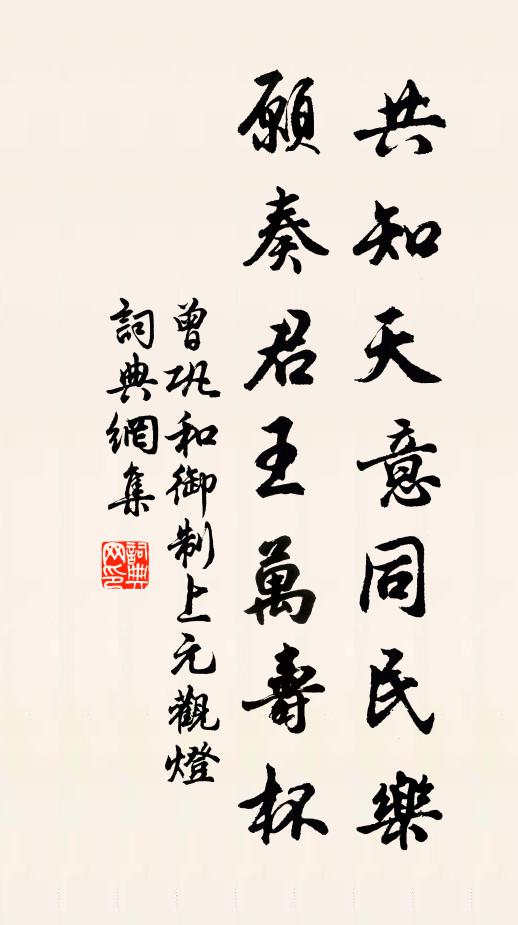 共知天意同民樂
願奏君王萬壽杯
曾巩和御制上元觀燈
詞典網集
詞典网印